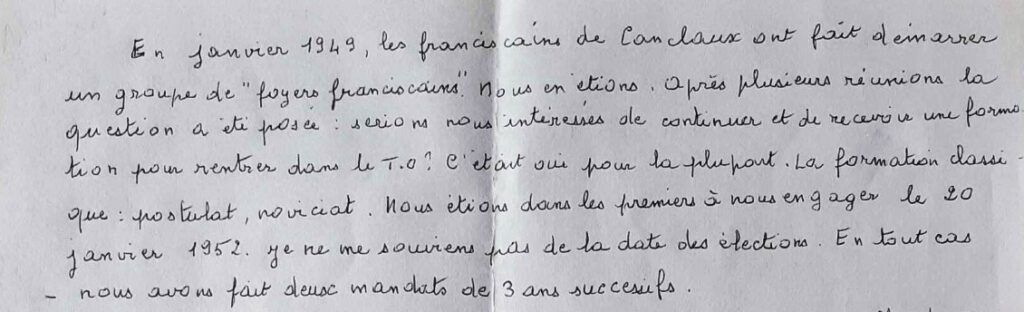 En janvier 1949, les franciscains de Canclaux ont fait démarrer
un groupe de "foyers franciscains". Nous en étions. Après plusieurs réunions la
question a été posée : serions nous intéressés de continuer et de recevoir une forma
tion pour rentrer dans le T.O? C'était oui pour la plupart. La formation classi -
que : postulat, noviciat. Nous étions dans les premiers à nous engager le 20
janvier 1952. Je ne me souviens pas de la date des élections. En tout cas
- nous avons fait deux mandats de 3 ans succesifs.